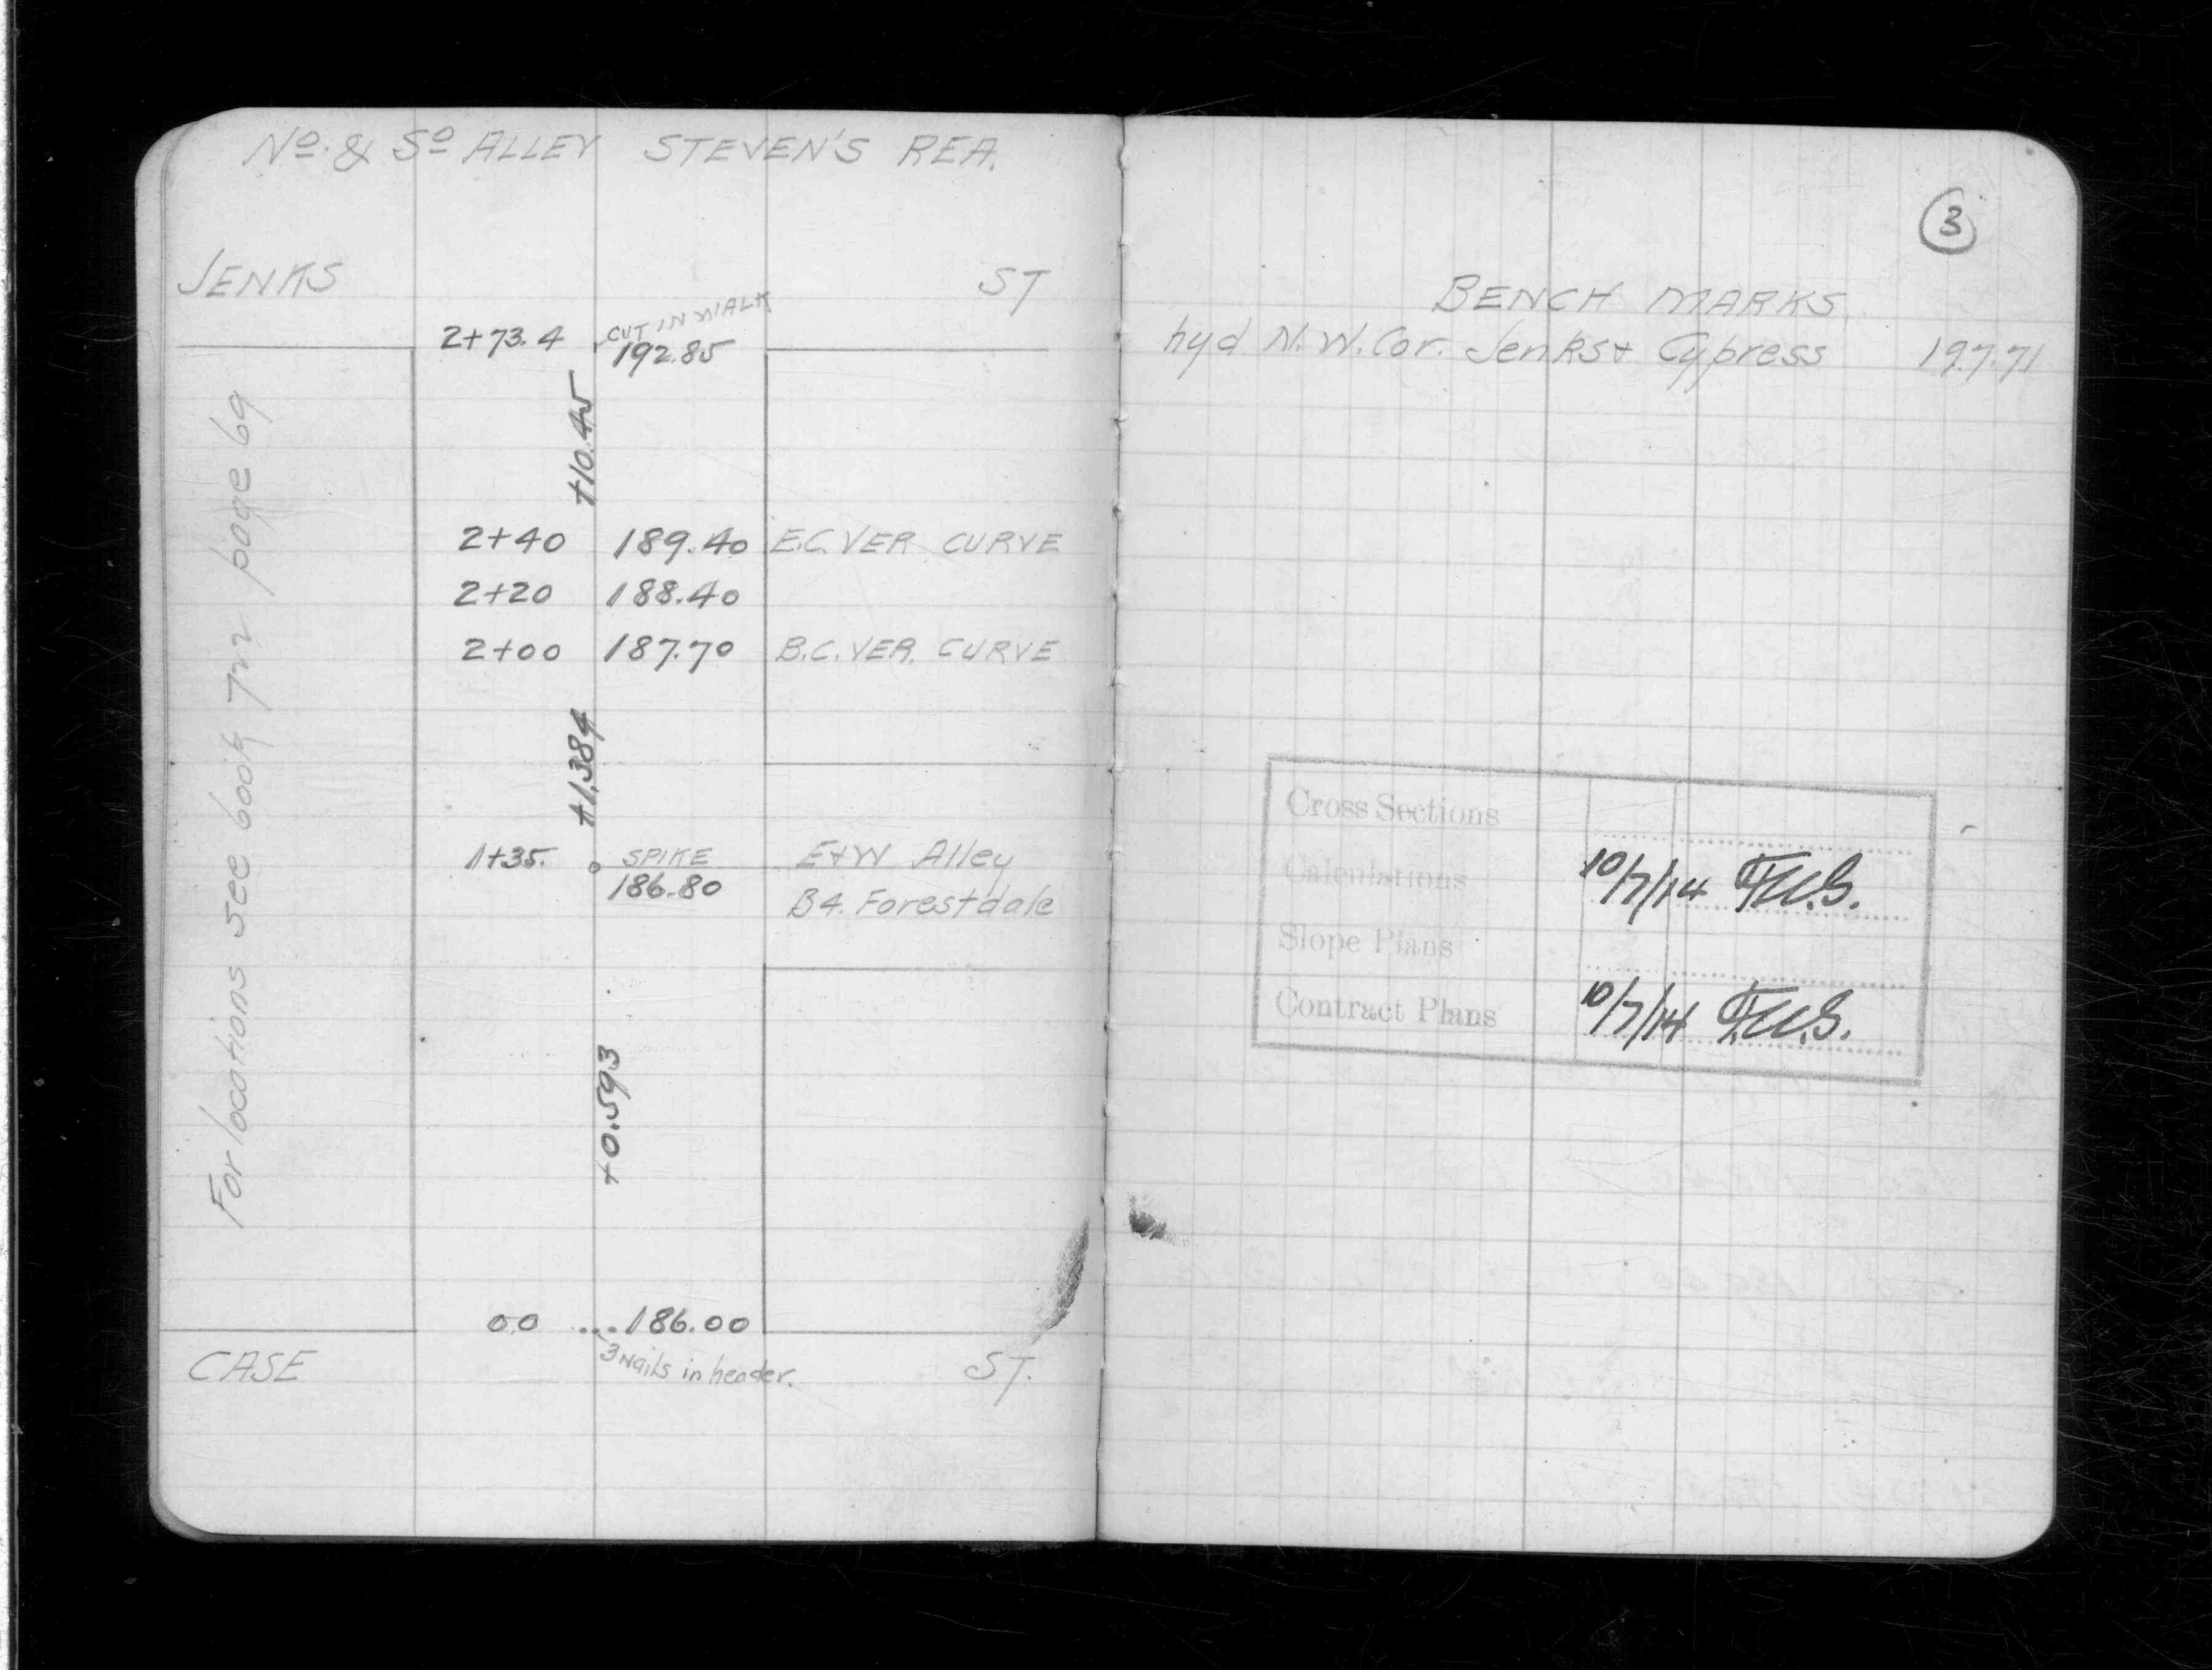 Nº. & Sº ALLEY STEVEN'S REA.
JENKS ST
CUT IN WALK
2+73.4 192.85
+10.45
2+40 189.40 E.C. VER CURVE
2+20 188.40
2+00 187.70 B.C. VER. CURVE
+1.384
1+35. SPIKE E+W Alley
186.80 B4. Forestdale
+0.593
00 186.00
3 Nails in header.
CASE ST.
For locations see book 722 page 69
3
BENCH MARKS
hyd N.W. Cor. Jenks + Cypress 197.71
Cross Sections
Calculations 10/7/14 F.W.S.
Slope Plans
Contract Plans 10/7/14 F.W.S.